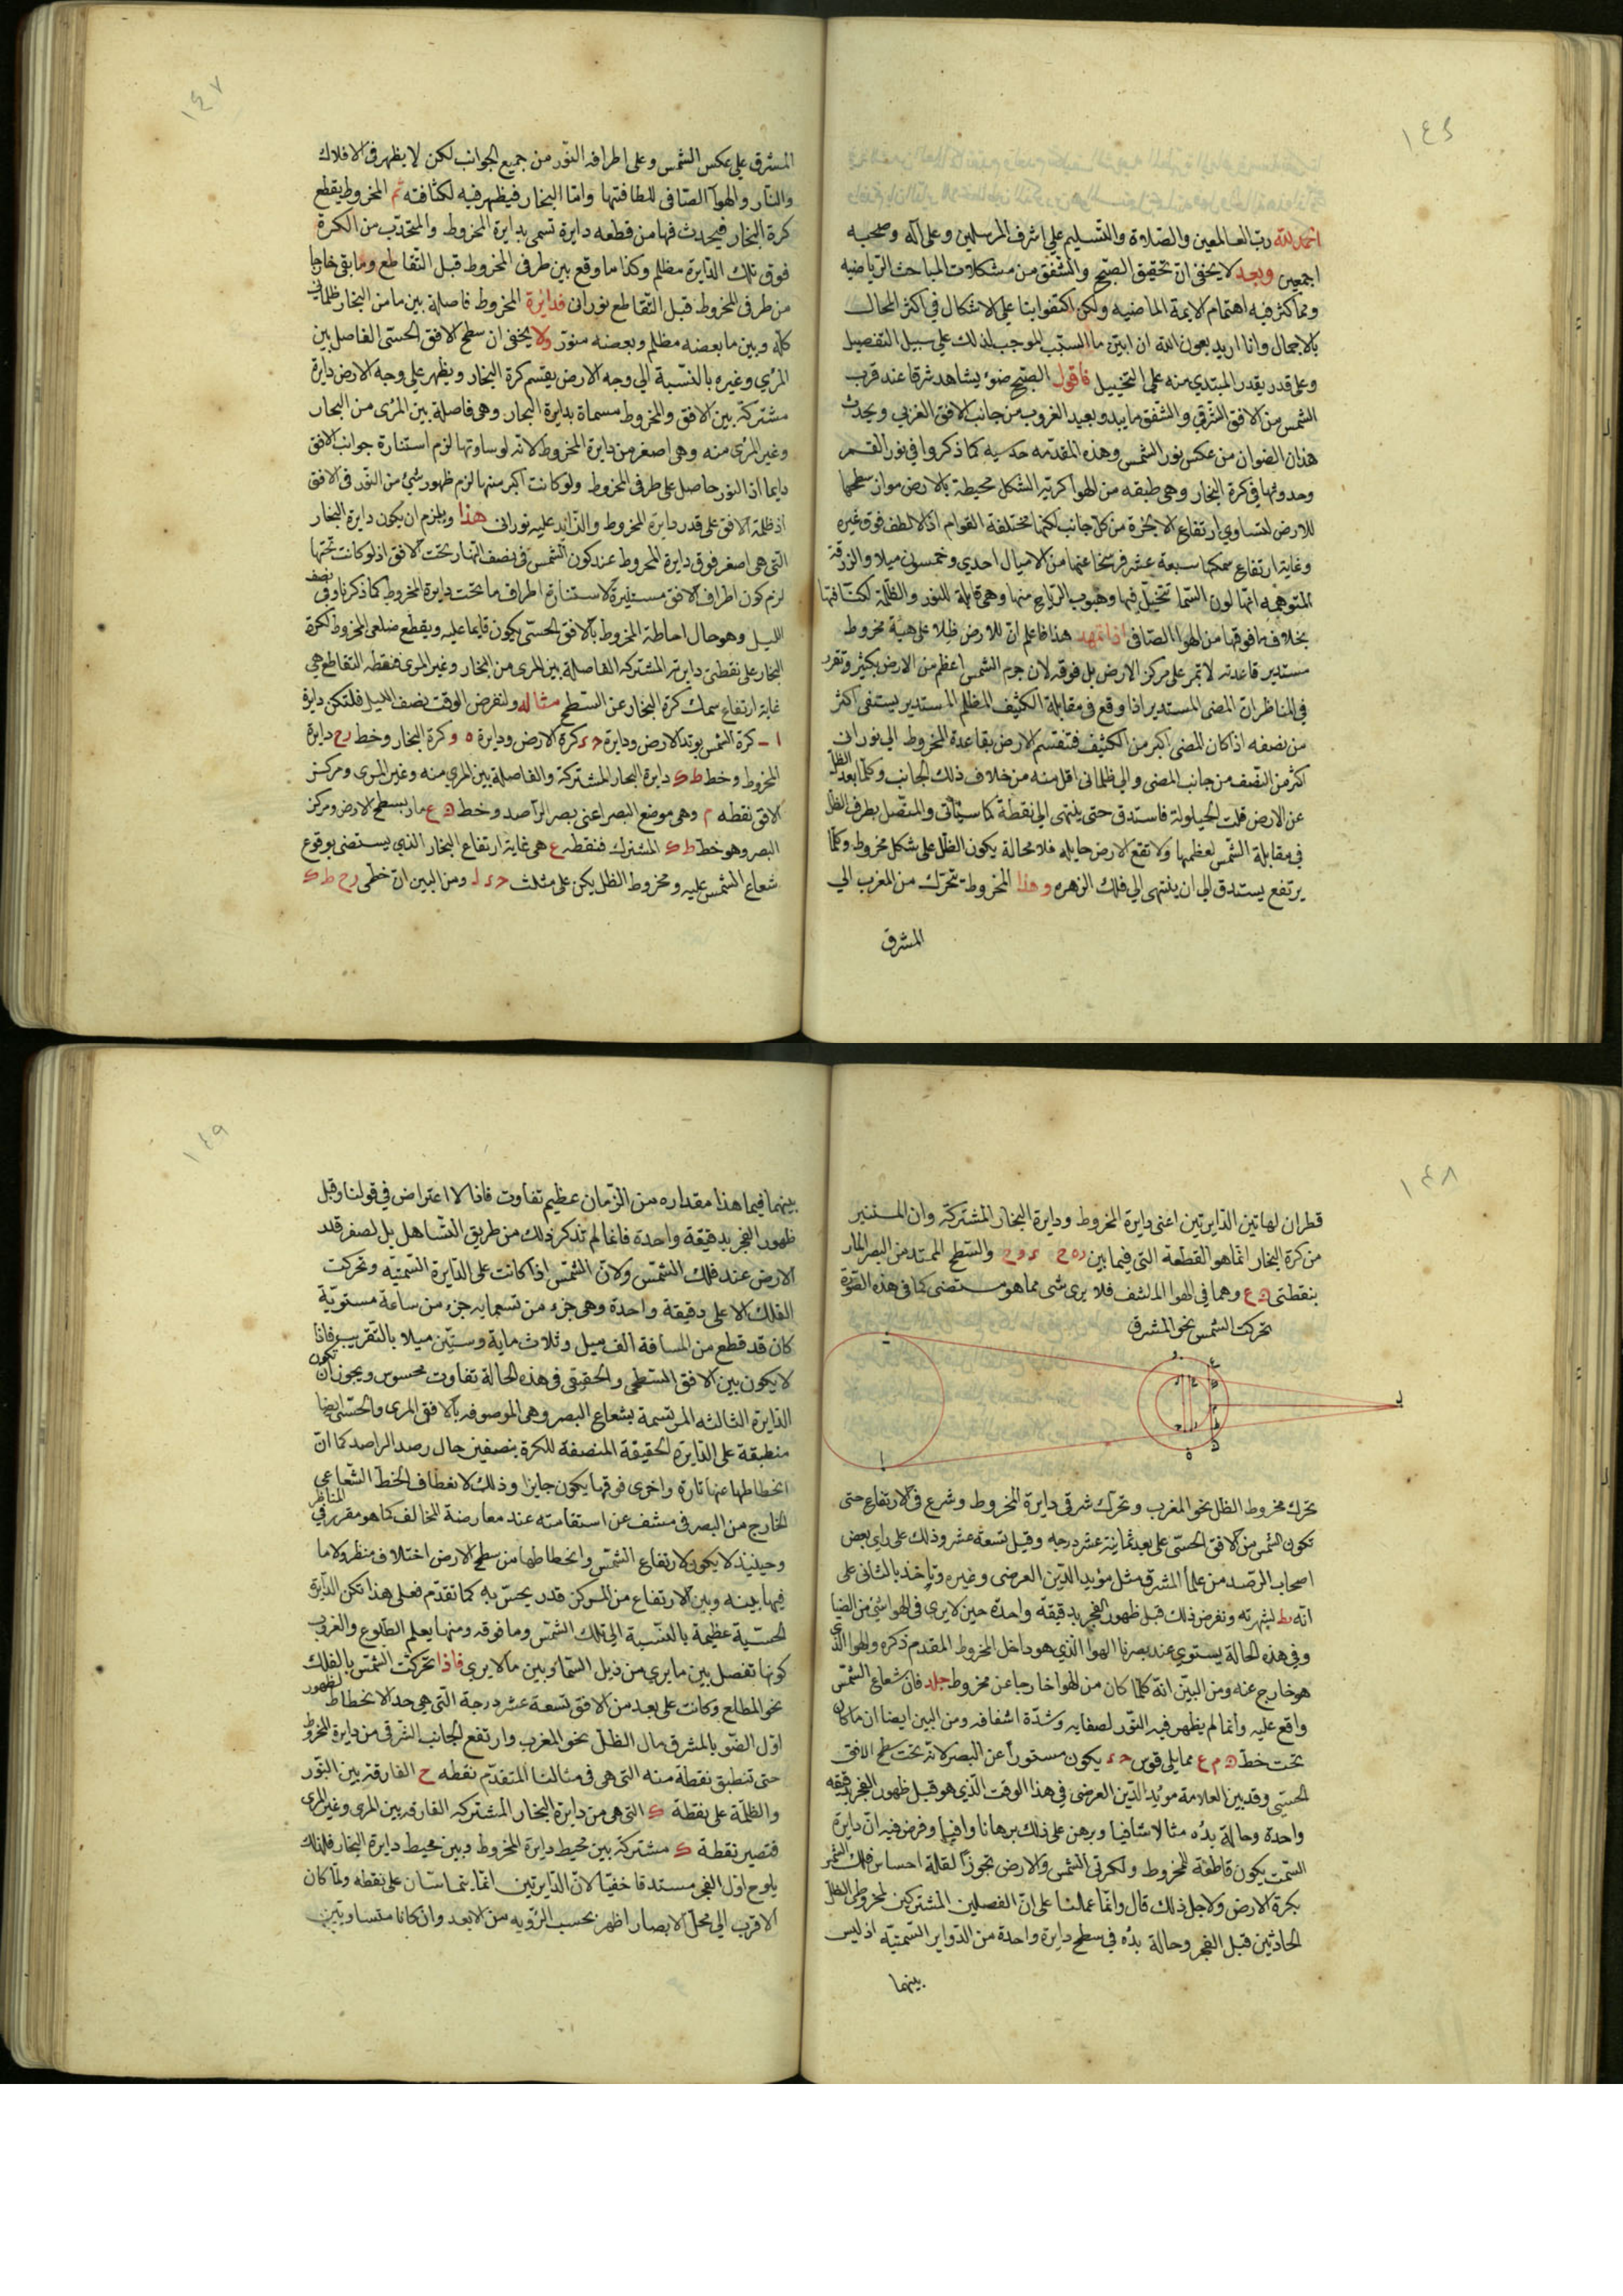 ١٤٦
الحمد لله رب العالمين والصلاة والتسليم على اشرف المرسلين وعلى آله وصحبه
اجمعين وبعد لا يخفى ان تحقيق الصبح والشفق من مشكلات المباحث الرياضيه
ومما كثر فيه اهتمام الايمة الماضيه ولكن اكتفوا بنا على الاشكال في اكثر المحال
بالاجمال وانا اريد بعون الله ان ابين ما السبب الموجب لذلك على سبيل التفصيل
وعلى قدر يقدر المبتدي منه على التخييل فاقول الصبح ضوء يشاهد شرقا عند قرب
الشمس من الافق الشرقي والشفق ما يبدو بعيد الغروب من جانب الافق الغربي ويحدث
هذان الضوان من عكس نور الشمس وهذه المقدمه حدسيه كما ذكروا في نور القمر
وحدوثها في كرة البخار وهي طبقه من الهوا كرية الشكل محيطة بالارض مواز سطحها
للارض لتساوي ارتفاع الابخرة من كل جانب لكنها مختلفة القوام اذ الالطف فوق غيره
وغاية ارتفاع سمكها سبعة عشر فرسخا عنها من الاميال احدي وخمسون ميلا والزرقة
المتوهمه انها لون السما تتخيل فيها وهبوب الرياح منها وهي قابلة للنور والظلمة لكثافتها
بخلاف ما فوقها من الهوا الصافى اذا تمهد هذا فاعلم ان للارض ظلا على هيئة مخروط
مستدير قاعدته لا تمر على مركز الارض بل فوقه لان جرم الشمس اعظم من الارض بكثير وتقرر
في المناظر ان المضى المستدير اذا وقع في مقابلة الكثيف المظلم المستدير يستضى اكثر
من نصفه اذا كان المضى اكبر من الكثيف فتنقسم الارض بقاعدة المخروط الى نورانى
اكثر من النصف من جانب المضى والى ظلمانى اقل منه من خلاف ذلك الجانب وكلما بعد الظل
عن الارض قلت الحيلولة فاستدق حتى ينتهى الى نقطة كما سيأتى والمتصل بطرف الظل
فى مقابلة الشمس لعظمها ولا تقع الارض حايله فلا محالة يكون الظل على شكل مخروط وكلما
يرتفع يستدق الى ان ينتهى الى فلك الزهره وهذا المخروط يتحرك من المغرب الى
المشرق
١٤٧
المشرق على عكس الشمس وعلى اطرافه النور من جميع الجوانب لكن لا يظهر فى الافلاك
والنار والهوآ الصافى للطافتها واما البخار فيظهر فيه لكثافته ثم المخروط يقطع
كرة البخار فيحدث فها من قطعه دايرة تسمى بدايرة المخروط والمتحدب من الكرة
فوق تلك الدايرة مظلم وكذا ما وقع بين طرفى المخروط قبل التقاطع وما بقى خارجا
من طرفى المخروط قبل التقاطع نورانى فدائرة المخروط فاصلة بين ما من البخار ظلمانى
كله وبين ما بعضه مظلم وبعضه منور ولا يخفى ان سطح الافق الحسى الفاصل بين
المرئي وغيره بالنسبة الي وجه الارض يقسم كرة البخار ويظهر على وجه الارض دايرة
مشتركة بين الافق والمخروط مسماة بدايرة البخار وهى فاصلة بين المرئى من البخار
وغير المرئى منه وهى اصغر من دايرة المخروط لانه لو ساوتها لزم استنارة جوانب الافق
دايما اذ النور حاصل على طرفى المخروط ولو كانت اكبر منها لزم ظهور شئ من النور فى الافق
اذ ظلمة الافق على قدر دايرة المخروط والزايد عليه نورانى هذا ويلزم ان يكون دايرة البخار
التى هى اصغر فوق دايرة المخروط عند كون الشمس فى نصف النهار تحت الافق اذ لو كانت تحتها
لزم كون اطراف الافق مستنيرة لاستنارة اطراف ما تحت دايرة المخروط كما ذكرنا وفى نصف
الليل وهو حال احاطة المخروط بالافق الحسى يكون قايما عليه ويقطع ضلعى المخروط لكرة
البخار على نقطتى دايرته المشتركه الفاصلة بين المرى من البخار وغير المرى فنقطه التقاطع هى
غاية ارتفاع سمك كرة البخار عن السطح مثاله ولنفرض الوقت نصف الليل فلتكن دايرة
ا ب كرة الشمس بوتد الارض ودايرة حء كرة الارض ودايرة ه و كرة البخار وخط رح دايرة
المخروط وخط طك دايرة البحار المشتركة والفاصلة بين المري منه وغير المرى ومركز
الافق نقطه م وهى موضع البصر اعنى بصر الراصد وخط ع مار بسطح الارض ومركز
البصر وهو خط طك المشترك فنقطه ع هى غاية ارتفاع البخار الذي يستضى بوقوع
شعاع الشمس عليه ومخروط الظل يكن على مثلث حءل ومن البين ان خطى رح طك
١٤٨
قطران لهاتين الدايرتين اعنى دايرة المخروط ودايرة البخار المشتركة وان المستنير
من كرة البخار انما هو القطعة التى فيما بين والسطح الممتد من البصر المار
بنقطتى ع وهما فى الهوا فلا يرى شى مما هو مستضى كما فى هذه الصورة
تحركت الشمس نحو المشرق
تحرك مخروط الظل نحو المغرب وتحرك شرقى دايرة المخروط وشرع فى الارتفاع حتى
تكون الشمس من الافق الحسى على بعد ثمانية عشر درجه وقيل تسعة عشر وذلك على راى بعض
اصحاب الرصد من علما المشرق مثل مؤيد الدين العرضى وغيره وتأخذ بالثانى على
انه يط لشهرته ونفرض ذلك قبل ظهور الفجر بدقيقة واحدة حين لا يرى فى الهوا شئ من الضيا
وفى هذه الحالة يستوي عند بصرنا الهوا الذي هو داخل المخروط المقدم ذكره والهوا الذي
هو خارج عنه ومن البين انه كلما كان من الهوا خارجا عن مخروط فان شعاع الشمس
واقع عليه وانما لم يظهر فيه النور لصفايه وشدة اشفافه ومن البين ايضا ان ما كان
تحت خط م ع مما يلى قوس حء يكون مستورا عن البصر لانه تحت سطح الافق
الحسي وقد بين العلامة مؤيد الدين العرضى فى هذا الوقت الذي هو قبل ظهور الفجر بدقيقه
واحدة وحالة بدُه مثالا شافيا وبرهن على ذلك برهانا وافيا وفرض فيه ان دايرة
السمت يكون قاطعة للمخروط ولكرتى الشمس والارض تجوزا لقلة احساس فلك الشمس
بكرة الارض ولاجل ذلك قال وانما عملنا على ان الفصلين المشتركين لمخروطى الظل
الحادثين قبل الفجر وحالة بدُه فى سطح دايرة واحدة من الدواير السمتيه اذ ليس
بينهما
١٤٩
بينهما فيما هذا مقداره من الزمان عظيم تفاوت فاذا لا اعتراض فى قولنا وقبل
ظهور الفجر بدقيقة واحدة فانما لم تذكر ذلك من طريق التساهل بل لصغر قدر
الارض عند فلك الشمس ولان الشمس اذا كانت على الدايرة السمتيه وتحركت
الفلك الاعلى دقيقة واحدة وهى جزء من تسعمايه جزء من ساعة مستوية
كان قد قطع من المسافة الف ميل وثلاث ماية وستين ميلا بالتقريب فاذا
لا يكون بين الافق السطحى والحقيقى فى هذه الحالة تفاوت محسوس ويجوز ان تكون
الدايرة الثالثه المرتسمة بشعاع البصر وهى الموصوفه بالافق المرى والحسى ايضا
منطبقة على الدايرة الحقيقة المنصفة للكرة بنصفين حال رصد الراصد كما ان
انحطاطها عنها تارة واخرى فوقها يكون جايزا وذلك لانعطاف الخط الشعاعى
الخارج من البصر فى مشف عن استقامته عند معارضة المخالف كما هو مقرر فى المناظر
وحينيذ لا يكون لارتفاع الشمس وانحطاطها من سطح الارض اختلاف منظر ولا ما
فيها بينه وبين الارتفاع من المركز قدر يحس به كما تقدم فعلى هذا تكن الدايرة
الحسية عظيمة بالنسبة الى فلك الشمس وما فوقه ومنها يعلم الطلوع والغروب
كونها تفصل بين ما يرى من ذيل السما وبين ما لا يرى فاذا تحركت الشمس بالفلك
نحو المطلع وكانت على بعد من الافق تسعة عشر درجة التى هى حد الانحطاط لظهور
اول الضو بالمشرق مال الظل نحو المغرب وارتفع الجانب الشرقى من دايرة المخروط
حتى تنطبق نقطة منه التى هى فى مثالنا المتقدم نقطه ح الفارقة بين النور
والظلمة على نقطة ك التى هى من دايرة البخار المشتركه الفارقه بين المرى وغير المرى
فتصير نقطة ك مشتركة بين محيط دايرة المخروط وبين محيط دايرة البخار فلذلك
يلوح اول الفجر مستدقا خفيا لان الدايرتين انما يتماسان على نقطه ولما كان
الاقرب الى محل الابصار اظهر بحسب الرؤيه من الابعد وان كانا متساويين